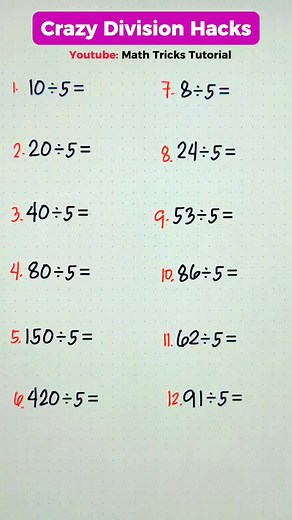 Crazy Division Hacks
Youtube: Math Tricks Tutorial
1. 10÷5=
2. 20÷5=
3. 40÷5=
4. 80÷5=
5. 150÷5=
6. 420÷5=
7. 8÷5=
8. 24÷5=
9. 53÷5=
10. 86÷5=
11. 62÷5=
12. 91÷5=